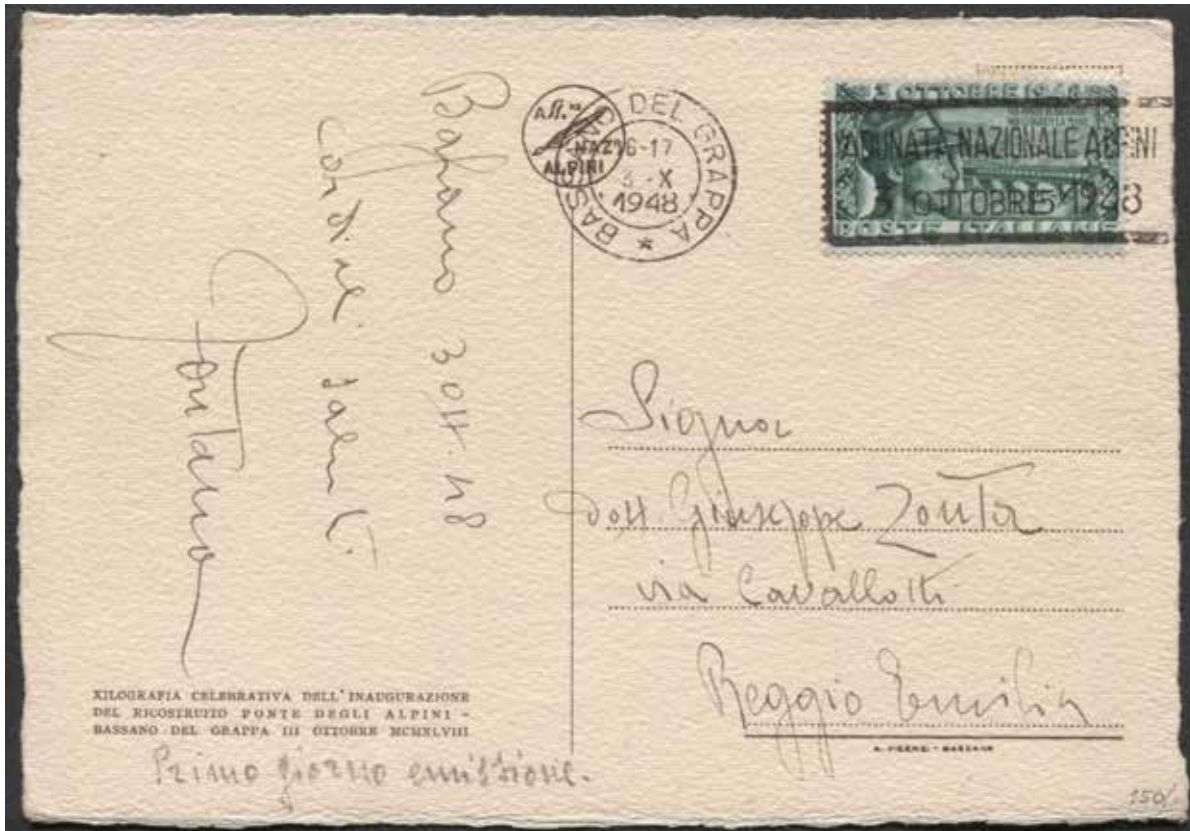 Bassano 3 ott. 48
cordiali saluti
ASS.NE
NAZ.
ALPINI
BASSANO DEL GRAPPA
16-17
3 - X
1948
3 OTTOBRE 1948
ADUNATA NAZIONALE ALPINI
3 OTTOBRE 1948
POSTE ITALIANE
Signor
dott Giuseppe Zonta
via Cavallotti
Reggio Emilia
XILOGRAFIA CELEBRATIVA DELL'INAUGURAZIONE
DEL RICOSTRUITO PONTE DEGLI ALPINI -
BASSANO DEL GRAPPA III OTTOBRE MCMXLVIII
Primo giorno emissione.
BASSANO
150/